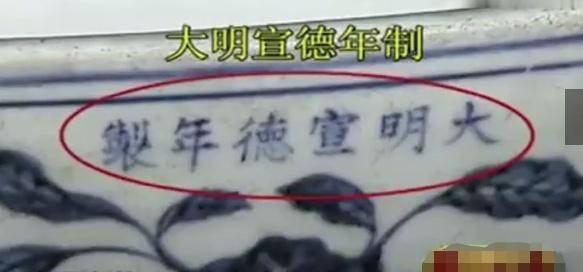 大明宣德年制
大明宣德年製